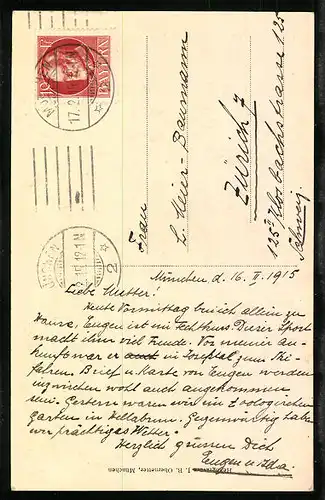 10
BAYERN
MÜNCHEN
17.2.
12-1 N
2
Frau
L. Meier-Baumann
Zürich 7
125
Schweiz
München d. 16. II. 1915
Liebe Mutter!
Heute Vormittag bin ich allein zu
Hause, Eugen ist im Fechtkurs. Dieser Sport
macht ihm viel Freude. Vor meiner An-
kunft war er auch in zum Ski-
fahren. Brief u. Karte von Eugen werden
inzwischen wohl auch angekommen
sein. Gestern waren wir im Zoologischen
Garten in Hellabrunn. Gegenwärtig haben
wir prächtiges Wetter.
Herzlich grüssen Dich
Eugen u. Ida.
J. B. Obernetter, München